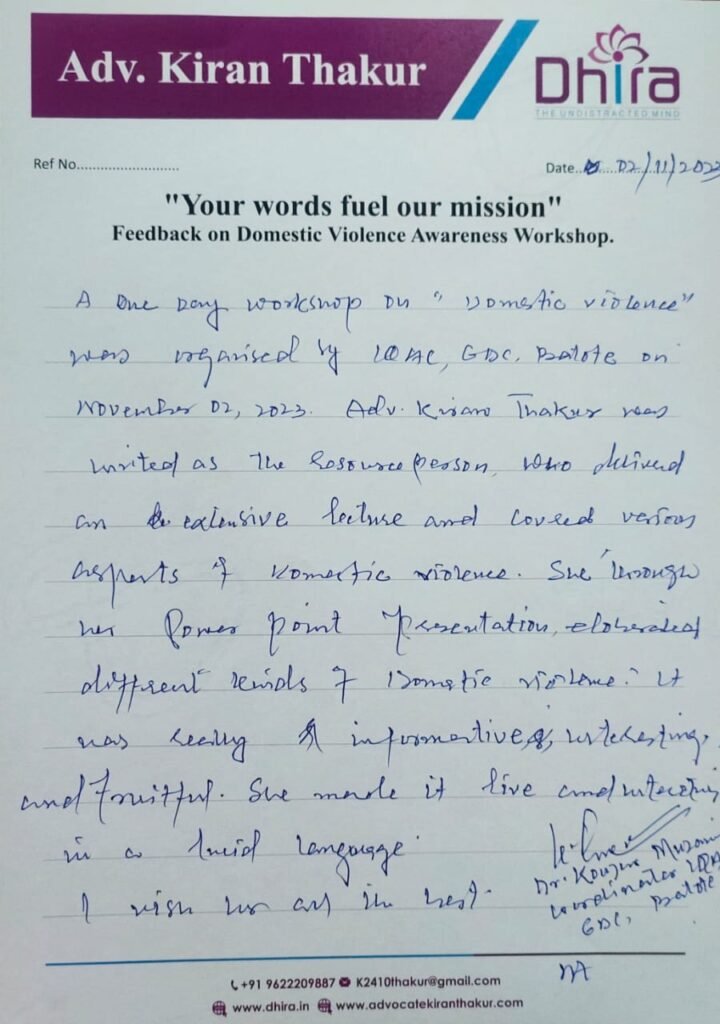 Adv. Kiran Thakur
Dhira
THE UNDISTRACTED MIND
Ref No..........................
Date.......02/11/2023
"Your words fuel our mission"
Feedback on Domestic Violence Awareness Workshop.
A One Day workshop on "Domestic violence"
was organised by IQAC, GDC, Batote on
November 02, 2023. Adv. Kiran Thakur was
invited as the Resource person, who delivered
an extensive lecture and covered various
aspects of Domestic violence. She through
her Power point Presentation, eloberated
different kinds of Domestic violence. It
was really informative, interesting,
and fruitful. She made it live and interacting
in a lucid language.
I wish her all the best.
Dr. Kouser
Coordinator IQAC
GDC, Batote
+91 9622209887 K2410thakur@gmail.com
www.dhira.in www.advocatekiranthakur.com